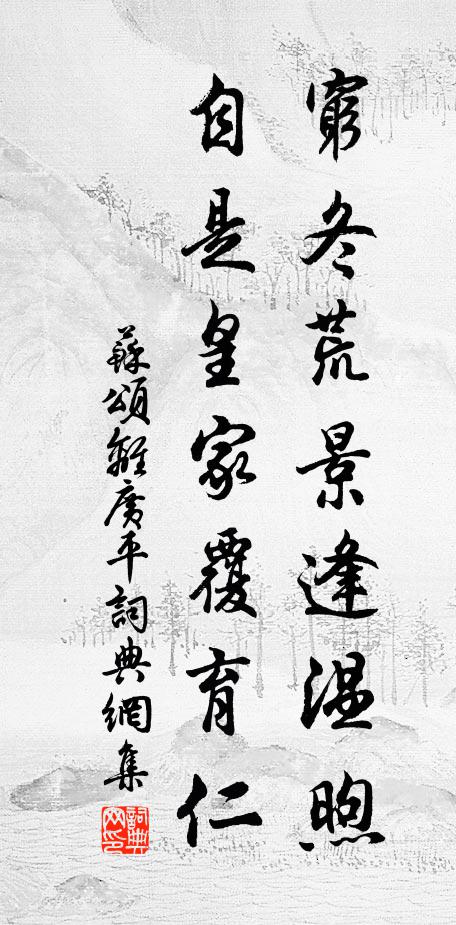 窮冬荒景逢温煦
自是皇家覆育仁
蘇頌離廣平詞典網集
詞典網印